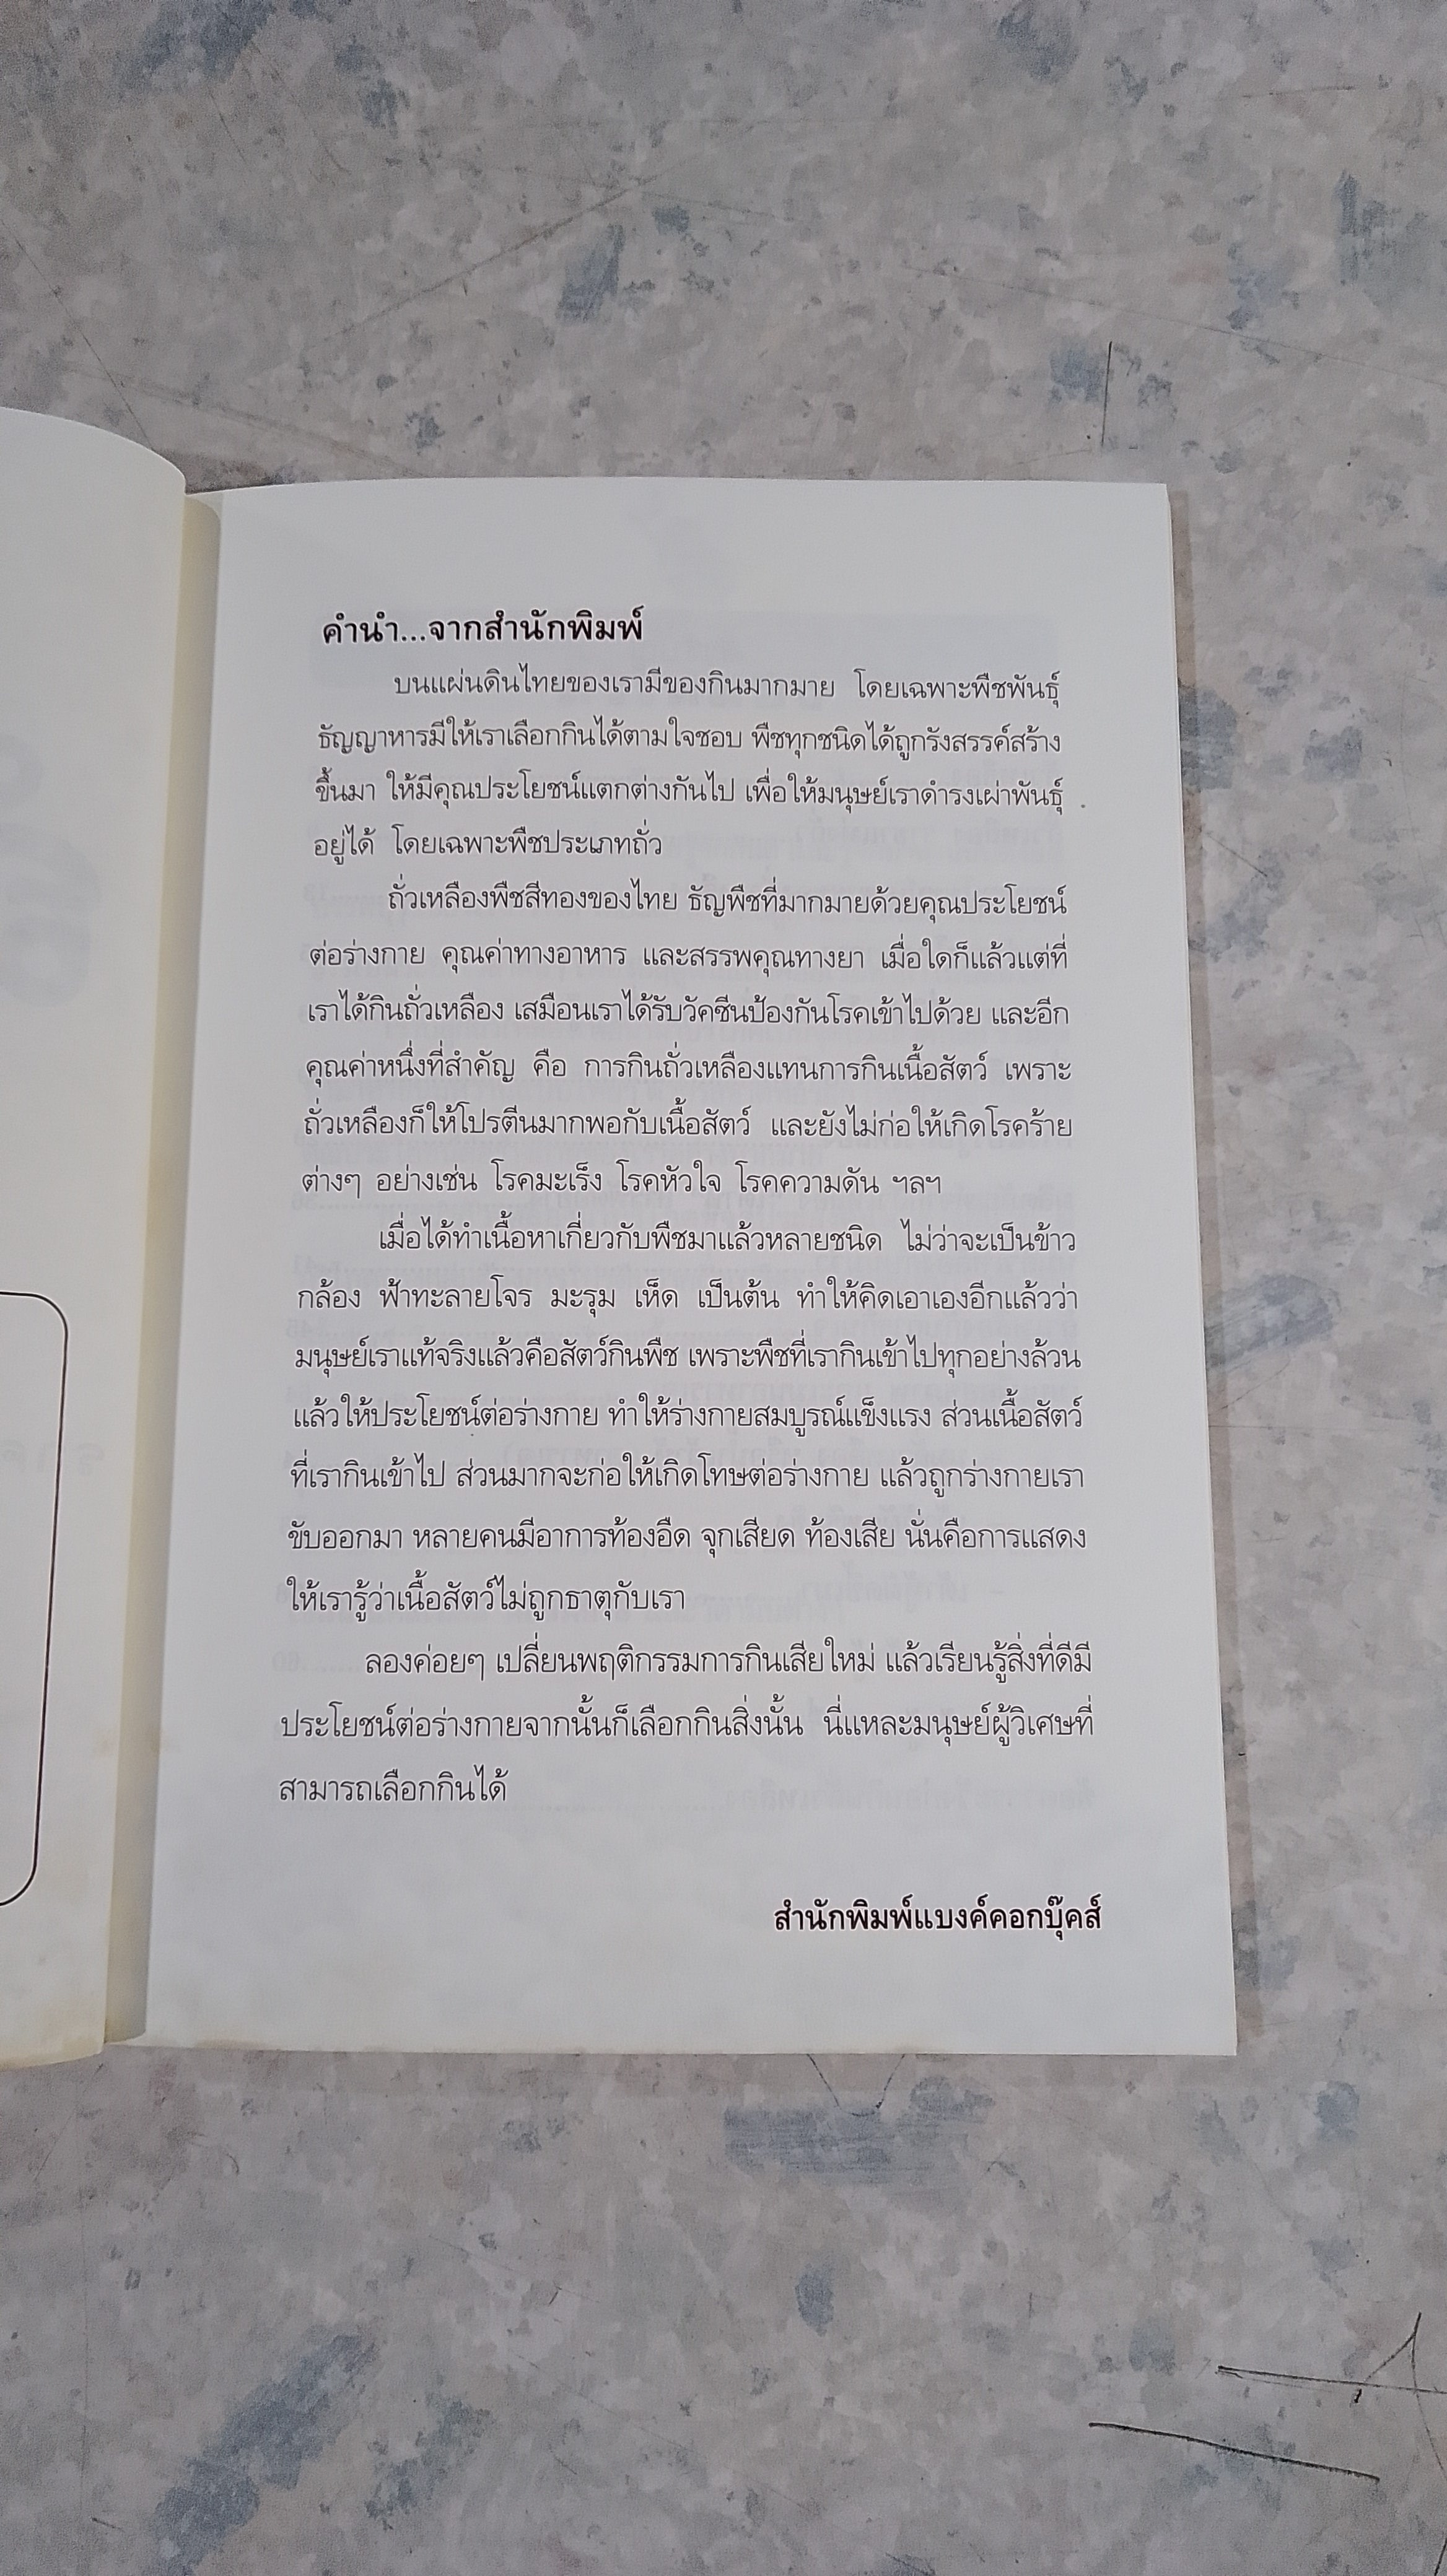 คำนำ...จากสำนักพิมพ์
บนแผ่นดินไทยของเรามีของกินมากมาย โดยเฉพาะพืชพันธุ์
ธัญญาหารมีให้เราเลือกกินได้ตามใจชอบ พืชทุกชนิดได้ถูกรังสรรค์สร้าง
ขึ้นมา ให้มีคุณประโยชน์แตกต่างกันไป เพื่อให้มนุษย์เราดำรงเผ่าพันธุ์
อยู่ได้ โดยเฉพาะพืชประเภทถั่ว
ถั่วเหลืองพืชสีทองของไทย ธัญพืชที่มากมายด้วยคุณประโยชน์
ต่อร่างกาย คุณค่าทางอาหาร และสรรพคุณทางยา เมื่อใดก็แล้วแต่ที่
เราได้กินถั่วเหลือง เสมือนเราได้รับวัคซีนป้องกันโรคเข้าไปด้วย และอีก
คุณค่าหนึ่งที่สำคัญ คือ การกินถั่วเหลืองแทนการกินเนื้อสัตว์ เพราะ
ถั่วเหลืองก็ให้โปรตีนมากพอกับเนื้อสัตว์ และยังไม่ก่อให้เกิดโรคร้าย
ต่างๆ อย่างเช่น โรคมะเร็ง โรคหัวใจ โรคความดัน ฯลฯ
เมื่อได้ทำเนื้อหาเกี่ยวกับพืชมาแล้วหลายชนิด ไม่ว่าจะเป็นข้าว
กล้อง ฟ้าทะลายโจร มะรุม เห็ด เป็นต้น ทำให้คิดเอาเองอีกแล้วว่า
มนุษย์เราแท้จริงแล้วคือสัตว์กินพืช เพราะพืชที่เรากินเข้าไปทุกอย่างล้วน
แล้วให้ประโยชน์ต่อร่างกาย ทำให้ร่างกายสมบูรณ์แข็งแรง ส่วนเนื้อสัตว์
ที่เรากินเข้าไป ส่วนมากจะก่อให้เกิดโทษต่อร่างกาย แล้วถูกร่างกายเรา
ขับออกมา หลายคนมีอาการท้องอืด จุกเสียด ท้องเสีย นั่นคือการแสดง
ให้เรารู้ว่าเนื้อสัตว์ไม่ถูกธาตุกับเรา
ลองค่อยๆ เปลี่ยนพฤติกรรมการกินเสียใหม่ แล้วเรียนรู้สิ่งที่ดีมี
ประโยชน์ต่อร่างกายจากนั้นก็เลือกกินสิ่งนั้น นี่แหละมนุษย์ผู้วิเศษที่
สามารถเลือกกินได้
สำนักพิมพ์แบงค์คอกบุ๊คส์